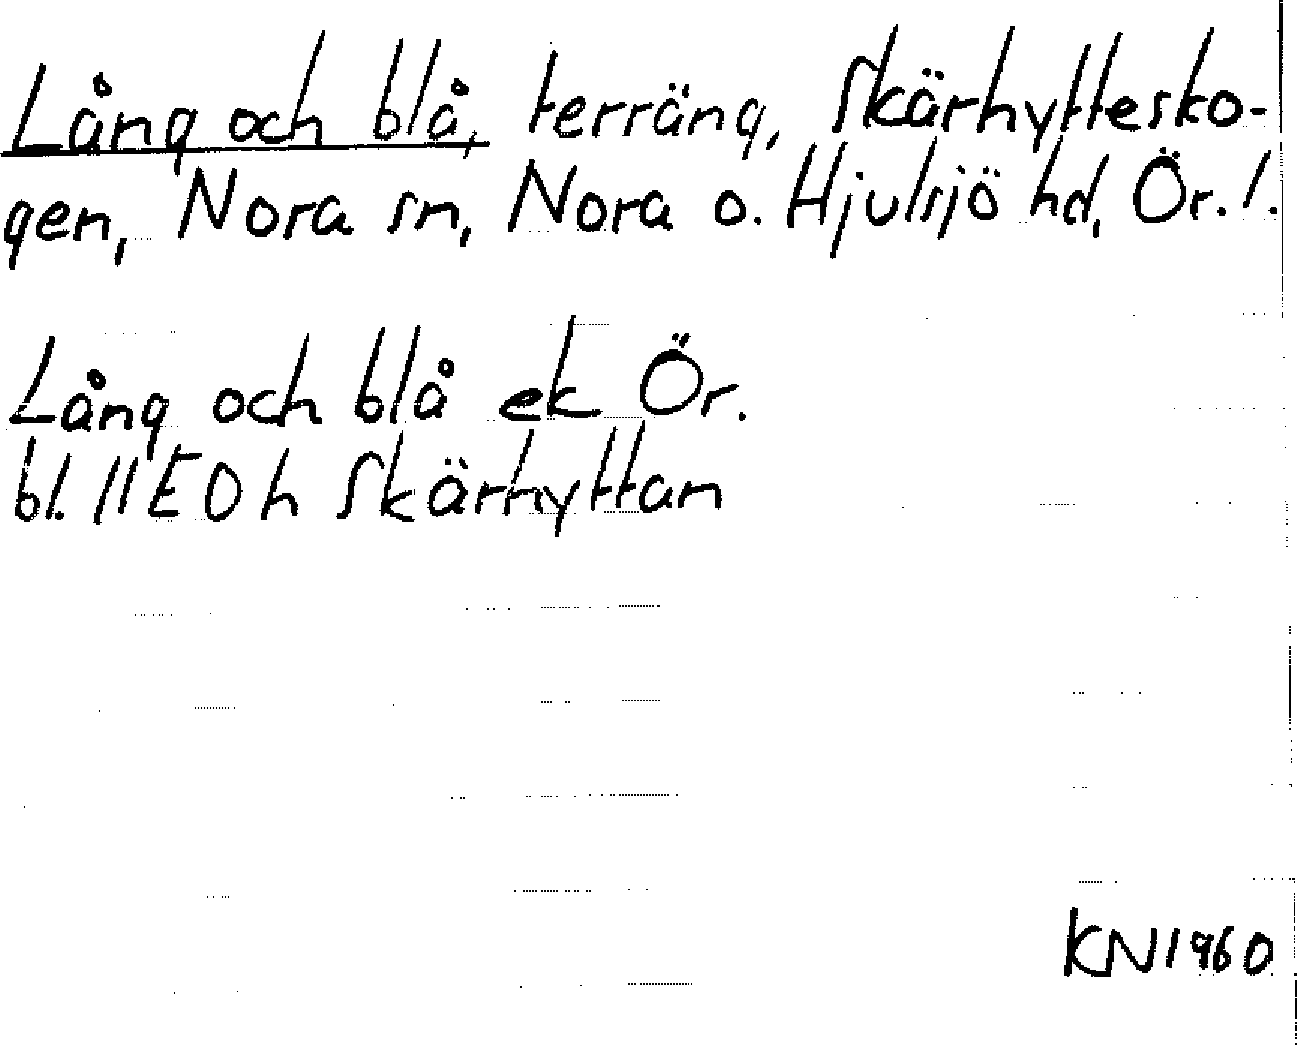 Lång och blå, terräng, Skärhyttesko-
gen, Nora sn, Nora o. Hjulsjö hd, Ör. l.
Lång och blå ek Ör.
bl. 11E0h Skärhyttan
KN1960